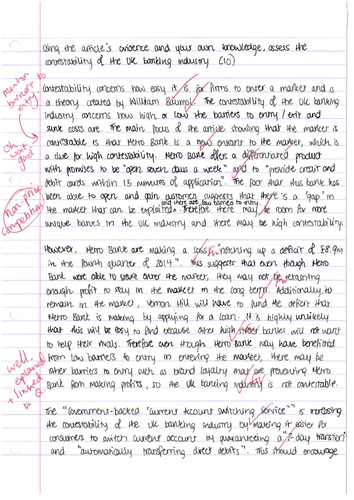 Using the article's evidence and your own knowledge, assess the
contestability of the UK banking industry (10)
mention
barriers to
entry
Contestability concerns how easy it is for firms to enter a market and is
a theory created by William Baumol. The contestability of the UK banking
industry concerns how high or low the barriers to entry / exit and
sunk costs are. The main focus of the article showing that the market is
contestable is that Metro Bank is a new entrant to the market, which is
a clue for high contestability. Metro Bank offers a differentiated product
with promises to be 'open seven days a week' and to "provide credit and
debit cards within 15 minutes of application". The fact that this bank has
been able to open and gain customers suggests that there is a 'gap' in
and there are low barriers to entry
the market that can be exploited. Therefore there may be room for more
unique banks in the UK industry and there may be high contestability.
ok
good
non-price
competition
However, Metro Bank are making a loss, "notching up a deficit of £8.9m
in the fourth quarter of 2014". This suggests that even though Metro
Bank were able to enter the market, they may not be retaining
enough profit to stay in the market in the long term. Additionally, to
remain in the market, Vernon Hill will have to fund the deficit that
Metro Bank is making by applying for a loan. It is highly unlikely
that this will be easy to find because other high street banks will not want
to help their rivals. Therefore even though Metro Bank may have benefited
from low barriers to entry in entering the market, there may be
other barriers to entry such as brand loyalty that are preventing Metro
Bank from making profits, so the UK banking industry is not contestable.
well
explained
+ linked
to Q
The "Government-backed 'current account switching service'" is increasing
the contestability of the UK banking industry by making it easier for
consumers to switch current account by guaranteeing a "7-day transition"
and "automatically transferring direct debits". This should encourage